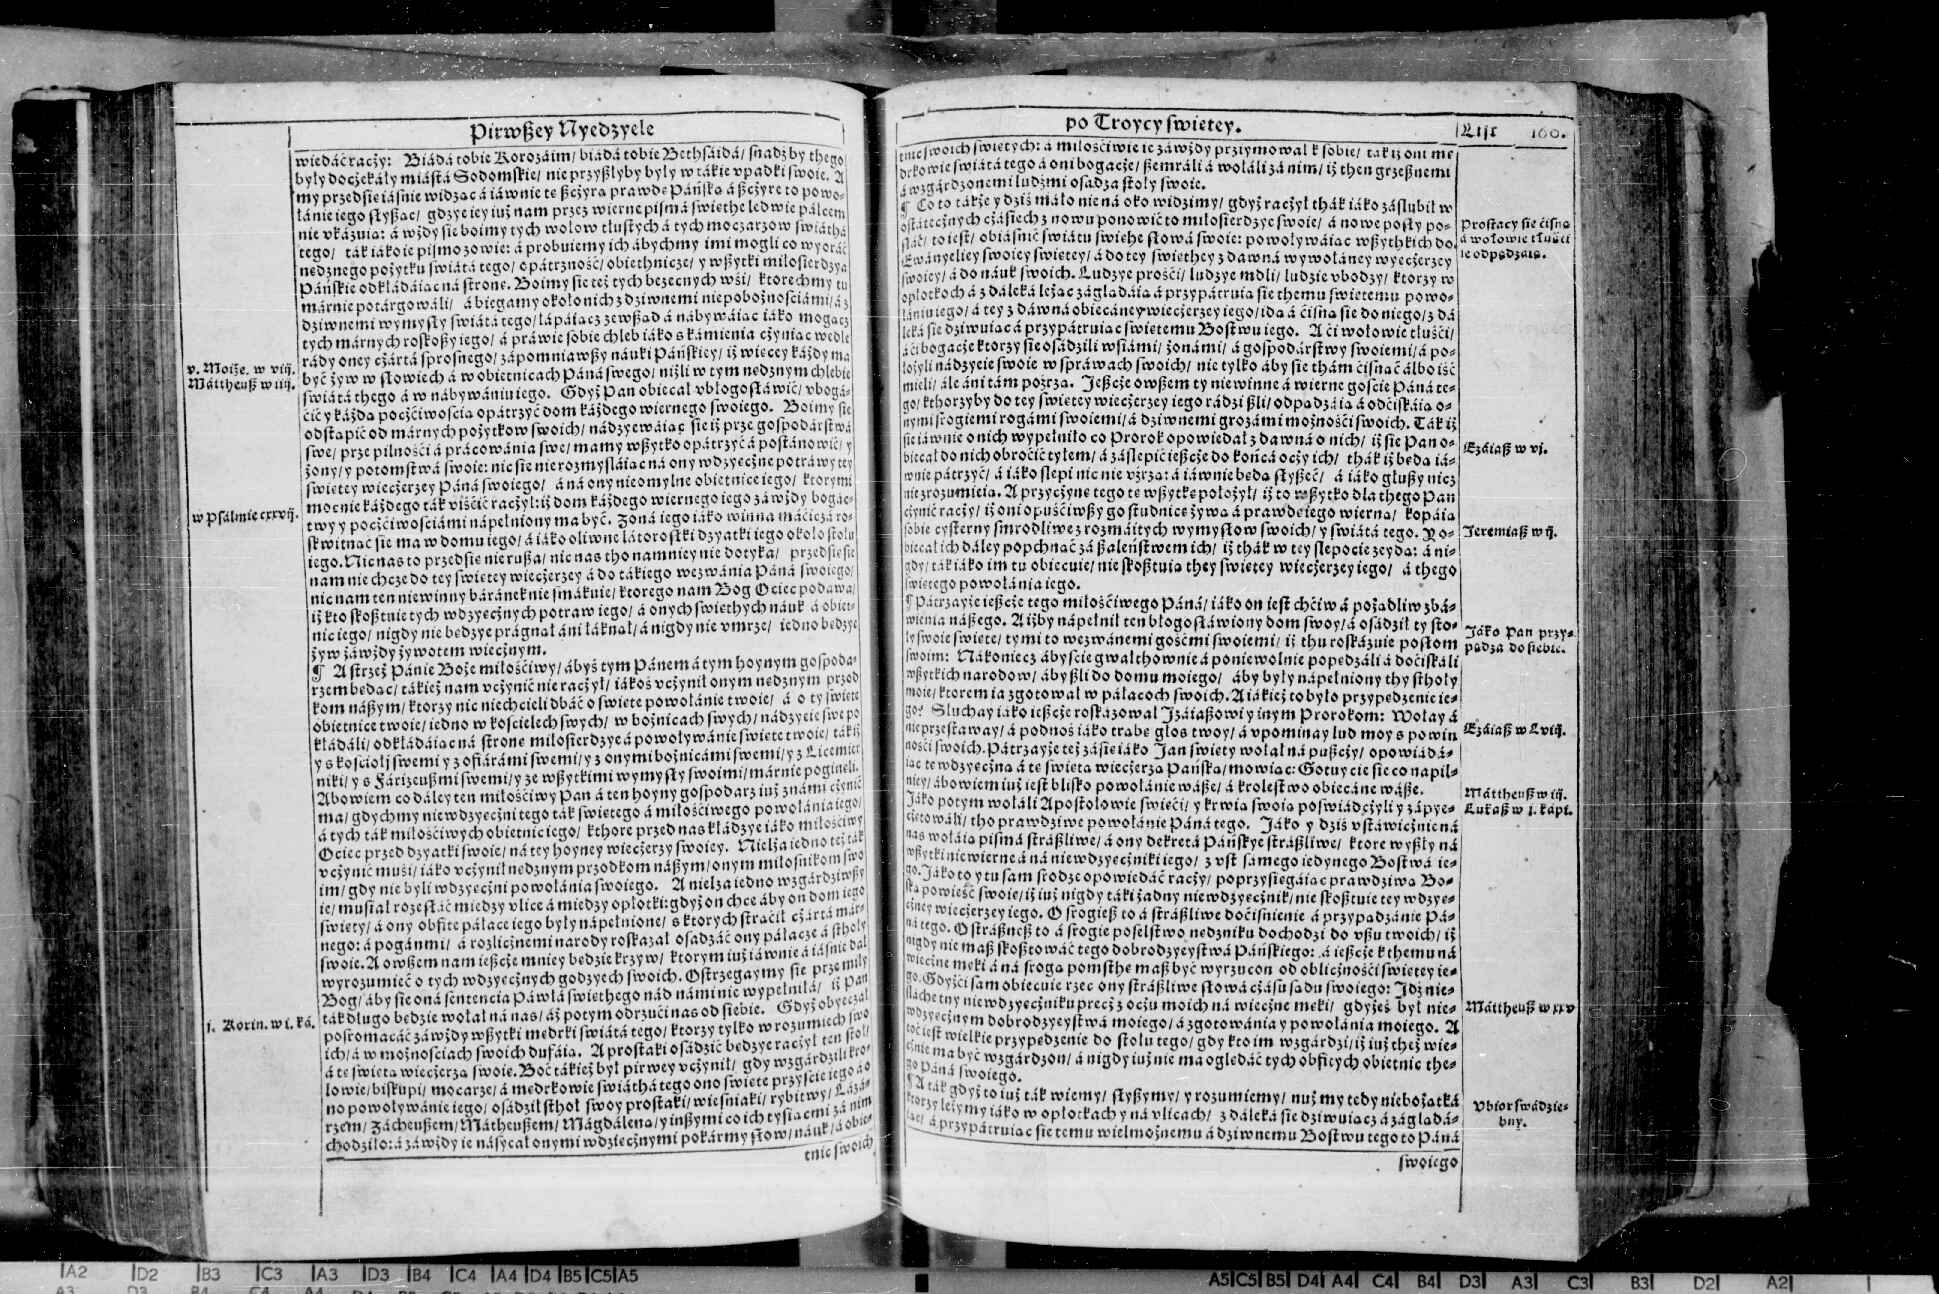 Pirwſzey Nyedzyele
wiedáć racży: Biádá tobie Korozáim/ biádá tobie Bethſáidá/ ſnadź by thego
były docżekáły miáſtá Sodomſkie/ nie przyſzłyby były w tákie vpadki ſwoie. A
my przedſie iáſnie widząc á iáwnie tę ſzcżyrą prawdę Páńſką á ſzcżyre to powo-
łánie iego ſłyſząc/ gdzye iey iuż nam przez wierne piſmá ſwięthe ledwie pálcem
nie vkázuią: á wżdy ſie boimy tych wołow tłuſtych á tych mocżarzow ſwiáthá
tego/ ták iáko ie piſmo zowie: á probuiemy ich ábychmy imi mogli co wyoráć
nędznego pożytku ſwiátá tego/ opátrzność/ obiethnicze/ y wſzytki miłoſierdzya
Páńſkie odkłádáiąc ná ſtronę. Boimy ſie też tych bezecnych wśi/ ktorechmy tu
márnie potárgowáli/ á biegamy około nich z dziwnemi niepobożnoſciámi/ á z
dziwnemi wymyſły ſwiátá tego/ łápáiącz zewſząd á nábywáiąc iáko mogącz
tych márnych roſkoſzy iego/ á práwie ſobie chleb iáko s kámieniá cżyniąc wedle
rády oney cżártá ſproſnego/ zápomniawſzy náuki Páńſkiey/ iż więcey káżdy ma
być żyw w ſłowiech á w obietnicach Páná ſwego/ niżli w tym nędznym chlebie
ſwiátá thego á w nábywániu iego. Gdyż Pan obiecał vbłogoſłáwić/ vbogá-
ćić y káżdą pocżćiwoſcią opátrzyć dom káżdego wiernego ſwoiego. Boimy ſie
odſtąpić od márnych pożytkow ſwoich/ nádzyewáiąc ſie iż prze goſpodárſtwá
ſwe/ prze pilnośći á prácowánia ſwe/ mamy wſzytko opátrzyć á poſtánowić/ y
żony/ y potomſtwá ſwoie: nic ſie nie rozmyſláiąc ná ony wdzyęcżne potráwy tey
ſwiętey wiecżerzey Páná ſwoiego/ á ná ony nieomylne obietnice iego/ ktorymi
mocnie káżdego ták viśćić racżył: iż dom káżdego wiernego iego záwżdy bogác-
twy y pocżćiwoſciámi nápełniony ma być. Zoná iego iáko winna máćicá ro-
ſkwitnąć ſie ma w domu iego/ á iáko oliwne látoroſtki dzyatki iego około ſtołu
iego. Nic nas to przedſie nie ruſza/ nic nas tho namniey nie dotyka/ przedſie ſie
nam nie chcze do tey ſwiętey wiecżerzey á do tákiego wezwánia Páná ſwoiego/
nic nam ten niewinny báránek nie ſmákuie/ ktorego nam Bog Ociec podawa/
iż kto ſkoſztuie tych wdzyęcżnych potraw iego/ á onych ſwięthych náuk á obiet-
nic iego/ nigdy nie będzye prágnął áni łáknął/ á nigdy nie vmrze/ iedno będzye
żyw záwżdy żywotem wiecżnym.
¶ A ſtrzeż Pánie Boże miłośćiwy/ ábyś tym Pánem á tym hoynym goſpoda-
rzem będąc/ tákież nam vcżynić nie racżył/ iákoś vcżynił onym nędznym przod
kom náſzym/ ktorzy nie niechcieli dbáć o ſwięte powołánie twoie/ á o ty ſwięte
obietnice twoie/ iedno w koſcielech ſwych/ w bożnicach ſwych/ nádzyeie ſwe po
kłádáli/ odkłádáiąc ná ſtronę miłoſierdzye á powoływánie ſwięte twoie/ ták iż
y s koſcioły ſwemi y z ofiárámi ſwemi/ y z onymi bożnicámi ſwemi/ y z Licemier
niki/ y s Fárizeuſzmi ſwemi/ y ze wſzytkimi wymyſły ſwoimi/ márnie poginęli.
Abowiem co dáley ten miłośćiwy Pan á ten hoyny goſpodarz iuż známi cżynić
ma/ gdychmy niewdzyęcżni tego ták ſwiętego á miłośćiwego powołánia iego/
á tych ták miłośćiwych obietnic iego/ kthore przed nas kłádzye iáko miłośćiwy
Ociec przed dzyatki ſwoie/ ná tey hoyney wiecżerzy ſwoiey. Nielza iedno też ták
vcżynić muśi/ iáko vcżynił nędznym przodkom náſzym/ onym miłoſnikom ſwo
im/ gdy nie byli wdzyęcżni powołánia ſwoiego. A nielza iedno wzgárdziwſzy
ie/ muśiał rozeſłáć miedzy vlice á miedzy opłotki: gdyż on chce áby on dom iego
ſwięty/ á ony obfite páłace iego były nápełnione/ s ktorych ſtracił cżártá már-
nego: á pogánmi/ á rozlicżnemi narody roſkazał oſádzáć ony páłacze á ſthoły
ſwoie. A owſzem nam ieſzcże mniey będzie krzyw/ ktorym iuż iáwnie á iáſnie dał
wyrozumieć o tych wdzyęcżnych godzyech ſwoich. Oſtrzegaymy ſie prze miły
Bog/ áby ſie oná ſentencia Páwłá ſwięthego nád námi nie wypełniłá/ iż Pan
ták długo będzie wołał ná nas/ áż potym odrzući nas od ſiebie. Gdyż obyecżał
poſromácáć záwżdy wſzytki mędrki ſwiátá tego/ ktorzy tylko w rozumiech ſwo
ich/ á w możnoſciach ſwoich dufáią. A proſtaki oſádzić będzye racżył ten ſtoł/
á tę ſwiętą wiecżerzą ſwoię. Boć tákież był pirwey vcżynił/ gdy wzgárdzili kro-
lowie/ biſkupi/ mocarze/ á mędrkowie ſwiáthá tego ono ſwięte przyſcie iego áo
no powoływánie iego/ oſádził ſthoł ſwoy proſtaki/ wieſniaki/ rybitwy/ Łázá-
rzem/ Zácheuſzem/ Mátheuſzem/ Mágdáleną/ y inſzymi co ich tyſiącmi zá nim
chodziło: á záwżdy ie náſycał onymi wdzięcżnymi pokármy ſłow/ náuk/ á obie-
tnic ſwoich
v. Moiże. w viij.
Máttheuſz w iiij.
w Pſálmie cxxvij.
j. Korin. w i. ká.
po Troycy ſwiętey.
Liſt 160.
tnic ſwoich ſwiętych: á miłośćiwie ie záwżdy przyimował k ſobie/ ták iż oni mę
drkowie ſwiátá tego á oni bogacże/ ſzemráli á wołáli zá nim/ iż then grzeſznemi
á wzgárdzonemi ludźmi oſadza ſtoły ſwoie.
¶ Co to tákże y dziś máło nie ná oko widzimy/ gdyż racżył thák iáko záſlubił w
oſtátecżnych cżáſiech z nowu ponowić to miłoſierdzye ſwoie/ á nowe poſły po-
ſłáć/ to ieſt/ obiáſnić ſwiátu ſwięhe ſłowá ſwoie: powoływáiąc wſzythkich do
Ewányeliey ſwoiey ſwiętey/ á do tey ſwięthey z dawná wywołáney wyecżerzey
ſwoiey/ á do náuk ſwoich. Ludzye prośći/ ludzye mdli/ ludzie vbodzy/ ktorzy w
opłotkoch á z dáleká leżąc záglądáią á przypátruią ſie themu ſwiętemu powo-
łániu iego/ á tey z dawná obiecáney wiecżerzey iego/ idą á ćiſną ſie do niego/ z dá
leká ſie dziwuiąc á przypátruiąc ſwiętemu Boſtwu iego. A ći wołowie tłuśći/
á ći bogacże ktorzy ſie oſádzili wſiámi/ żonámi/ á goſpodárſtwy ſwoiemi/ á po-
łożyli nádzyeię ſwoię w ſpráwach ſwoich/ nie tylko áby ſie thám ćiſnąć álbo iść
mieli/ ále áni tám poźrzą. Jeſzcże owſzem ty niewinne á wierne goſcie Páná te-
go/ kthorzyby do tey ſwiętey wiecżerzey iego rádzi ſzli/ odpądzáią á odćiſkáią o-
nymi ſrogiemi rogámi ſwoiemi/ á dziwnemi grozámi możnośći ſwoich. Ták iż
ſie iáwnie o nich wypełniło co Prorok opowiedał z dawná o nich/ iż ſie Pan o-
biecał do nich obroćić tyłem/ á záślepić ieſzcże do końcá ocży ich/ thák iż będą iá-
wnie pátrzyć/ á iáko ſlepi nic nie vźrzą: á iáwnie będą ſłyſzeć/ á iáko głuſzy nicz
nie zrozumieią. A przycżynę tego tę wſzytkę położył/ iż to wſzytko dla thego Pan
cżynić racży/ iż oni opuśćiwſzy go ſtudnicę żywą á prawdę iego wierną/ kopáią
ſobie cyſterny ſmrodliwe z rozmáitych wymyſłow ſwoich/ y ſwiátá tego. Y o-
biecał ich dáley popchnąć zá ſzaleńſtwem ich/ iż thák w tey ſlepocie zeydą: á ni-
gdy/ ták iáko im tu obiecuie/ nie ſkoſztuią they ſwiętey wiecżerzey iego/ á thego
ſwiętego powołánia iego.
¶ Pátrzayże ieſzcże tego miłośćiwego Páná/ iáko on ieſt chćiw á pożądliw zbá-
wienia náſzego. A iżby nápełnił ten błogoſłáwiony dom ſwoy/ á oſádził ty ſto-
ły ſwoie ſwięte/ tymi to wezwánemi gośćmi ſwoiemi/ iż thu roſkázuie poſłom
ſwoim: Nákoniecz ábyſcie gwałthownie á poniewolnie popędzáli á doćiſkáli
wſzytkich narodow/ áby ſzli do domu moiego/ áby były nápełniony thy ſthoły
moie/ ktorem ia zgotował w páłacoch ſwoich. A iákież to było przypędzenie ie-
go? Słuchay iáko ieſzcże roſkázował Izáiaſzowi y inym Prorokom: Wołay á
nie przeſtaway/ á podnoś iáko trąbę głos twoy/ á vpominay lud moy s powin
nośći ſwoich. Pátrzayże też záſię iáko Jan ſwięty wołał ná puſzcży/ opowiádá-
iąc tę wdzyęcżną á tę ſwiętą wiecżerzą Páńſką/ mowiąc: Gotuycie ſie co napil-
niey/ ábowiem iuż ieſt bliſko powołánie wáſze/ á kroleſtwo obiecáne wáſze.
Jáko potym wołáli Apoſtołowie ſwięći/ y krwią ſwoią poſwiádcżyli y zápye-
cżętowáli/ tho prawdziwe powołánie Páná tego. Jáko y dziś vſtáwicżnie ná
nas wołáią piſmá ſtráſzliwe/ á ony dekretá Páńſkye ſtráſzliwe/ ktore wyſzły ná
wſzytki niewierne á ná niewdzyęcżniki iego/ z vſt ſámego iedynego Boſtwá ie-
go. Jáko to y tu ſam ſrodze opowiedáć racży/ poprzyſięgáiąc prawdziwą Bo-
ſką powieść ſwoię/ iż iuż nigdy táki żadny niewdzyęcżnik/ nie ſkoſztuie tey wdzyę-
cżney wiecżerzey iego. O ſrogieſz to á ſtráſzliwe doćiſnienie á przypądzánie Pá-
ná tego. O ſtráſzneſz to á ſrogie poſelſtwo nędzniku dochodzi do vſzu twoich/ iż
nigdy nie maſz ſkoſztowáć tego dobrodzyeyſtwá Páńſkiego: á ieſzcże k themu ná
wiecżne męki á ná ſrogą pomſthę maſz być wyrzucon od oblicżnośći ſwiętey ie-
go. Gdyżći ſam obiecuie rzec ony ſtráſzliwe ſłowá cżáſu ſądu ſwoiego: Idź nie-
ſláchetny niewdzyęcżniku precż z ocżu moich ná wiecżne męki/ gdyżeś był nie-
wdzyęcżnym dobrodzyeyſtwá moiego/ á zgotowánia y powołánia moiego. A
toć ieſt wielkie przypędzenie do ſtołu tego/ gdy kto im wzgárdzi/ iż iuż też wie-
cżnie ma być wzgárdzon/ á nigdy iuż nie ma oglądáć tych obfitych obietnic the-
go Páná ſwoiego.
¶ A ták gdyż to iuż ták wiemy/ ſłyſzymy/ y rozumiemy/ nuż my tedy nieboż̨átká
ktorzy leżymy iáko w opłotkach y ná vlicach/ z dáleká ſie dziwuiącz á záglądá-
iąc/ á przypátruiąc ſie temu wielmożnemu á dziwnemu Boſtwu tego to Páná
ſwoiego
Proſtacy ſie ćiſną
á wołowie tłuśći
ie odpądzáią.
Ezáiaſz w vj.
Jeremiaſz w ij.
Jáko Pan przy-
pądza do ſiebie.
Ezáiaſz w Lviij.
Máttheuſz w iij.
Łukaſz w j. kápi.
Máttheuſz w xxv
Vbior ſwádzie-
bny.